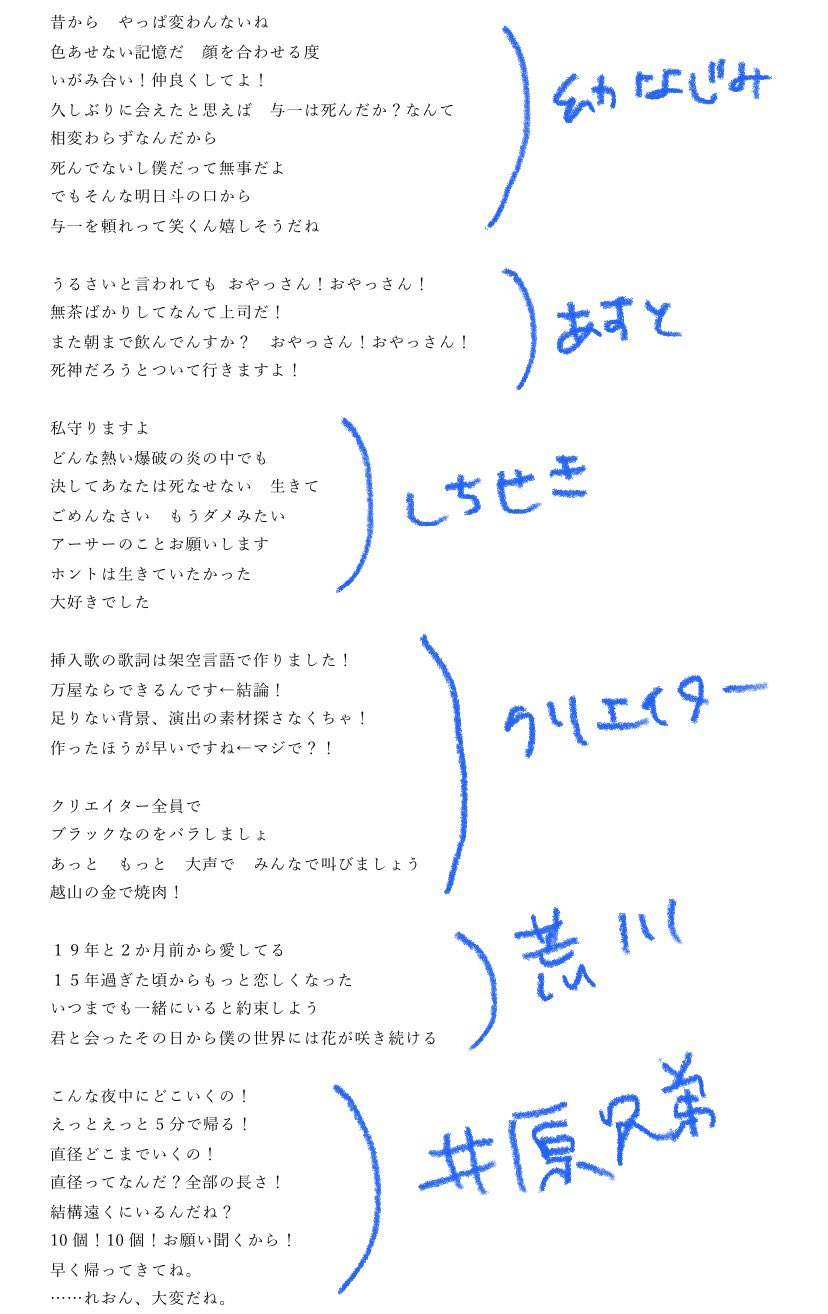 昔から　やっぱ変わんないね
色あせない記憶だ　顔を合わせる度
いがみ合い！仲良くしてよ！
久しぶりに会えたと思えば　与一は死んだか？なんて
相変わらずなんだから
死んでないし僕だって無事だよ
でもそんな明日斗の口から
与一を頼れって笑くん嬉しそうだね
幼なじみ
うるさいと言われても おやっさん！おやっさん！
無茶ばかりしてなんて上司だ！
また朝まで飲んでんすか？　おやっさん！おやっさん！
死神だろうとついて行きますよ！
あすと
私守りますよ
どんな熱い爆破の炎の中でも
決してあなたは死なせない　生きて
ごめんなさい　もうダメみたい
アーサーのことお願いします
ホントは生きていたかった
大好きでした
しちせき
挿入歌の歌詞は架空言語で作りました！
万屋ならできるんです←結論！
足りない背景、演出の素材探さなくちゃ！
作ったほうが早いですね←マジで？！
クリエイター全員で
ブラックなのをバラしましょ
あっと　もっと　大声で　みんなで叫びましょう
越山の金で焼肉！
クリエイター
１９年と２か月前から愛してる
１５年過ぎた頃からもっと恋しくなった
いつまでも一緒にいると約束しよう
君と会ったその日から僕の世界には花が咲き続ける
荒川
こんな夜中にどこいくの！
えっとえっと５分で帰る！
直径どこまでいくの！
直径ってなんだ？全部の長さ！
結構遠くにいるんだね？
10 個！10 個！お願い聞くから！
早く帰ってきてね。
……れおん、大変だね。
井原兄弟